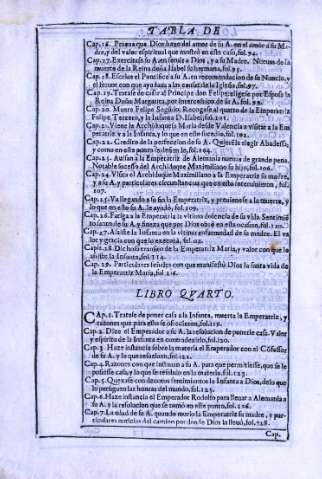 TABLA DE
Cap. 16. Prenuas que Dios haze del amor de su A. en el amor a su Madre, y del valor espiritual que mostrò en este caso, fol. 94.
Cap. 17. Exercicios de su A. en seruir a Dios, y a su Madre. Nueuas de la
muerte de la Reina doña Isabel su hermana, fol. 95.
Cap. 18. Escriue el Pontifice a su A. en recomendacion de su Nuncio, y
Cap. 19. Tratase de casar al Principe don Felipe: eligese por Esposa la
Reina Doña Margarita, por intercession de su A. fol. 99.
Cap. 20. Muere Felipe Segundo. Recogese al quarto de la Emperatriz
Felipe Tercero, y la Infanta D. Isabel, fol. 101.
Cap. 21. Viene la Archiduquesa Maria desde Valencia a visitar a la Emperatriz
y a la Infanta, y lo que en esto sucedio, fol. 102.
Cap. 22. Credito de la perfeccion de su A. Quierela elegir Abadessa,
Cap. 23. Auisan a la Emperatriz de Alemania nueuas de grande pena.
Notable sucesso del Archiduque Maximiliano su hijo, fol. 106.
Cap. 24. Visita el Archiduque Maximiliano a la Emperatriz su madre,
y a su A. y particulares circunstancias que en esto interuinieron, fol.
107.
Cap. 25. Va llegando a su fin la Emperatriz, y preuienese a la muerte, y
lo que en esto su A. le ayudò, fol. 109.
Cap. 26. Fatiga a la Emperatriz la vltima dolencia de su vida. Sentimiento
santo de su A. y fineza que por Dios obrò en esta ocasion, fol. 111.
Cap. 27. Assiste la Infanta en la vltima enfermedad de su madre. El valor
y gracia con que la exortaua, fol.
Cap. 28. Dichoso transito de la Emperatriz Maria, y valor con que lo
assiste la Infanta, fol. 114.
Cap. 29. Particulares señales con que manifestò Dios la santa vida de
la Emperatriz Maria, fol. 116.
LIBRO QVARTO.
CAp. 1. Tratase de poner casa a la Infanta, muerta la Emperatriz, y
razones que para esto se ofrecian, fol. 119.
Cap. 2. Dize el Emperador a su A. la resolucion de ponerle casa. Valor
y espiritu de la Infanta en contradezirlo, fol. 120.
Cap. 3. Haze instancia sobre la materia el Emperador con el Cõfessor
de su A. y lo que
Cap. 4. Razones con que instauan a su A. para que permitiesse, que se le
pusiesse casa, y lo que se resoluio en la materia, fol. 123.
Cap. 5. Quexase con dozenas sentimiento la Infanta a Dios, de lo que
la perseguian las honras del mundo, fol. 125.
Cap. 6. Haze instancia el Emperador Rodolfo para lleuar a Alemania a
su A. y la resolucion que se tomò en este punto, fol. 126.
Cap. 7. La edad de su A. quando murio la Emperatriz su madre, y particulares
noticias del camino por don de Dios la lleuò, fol. 128.
Cap.